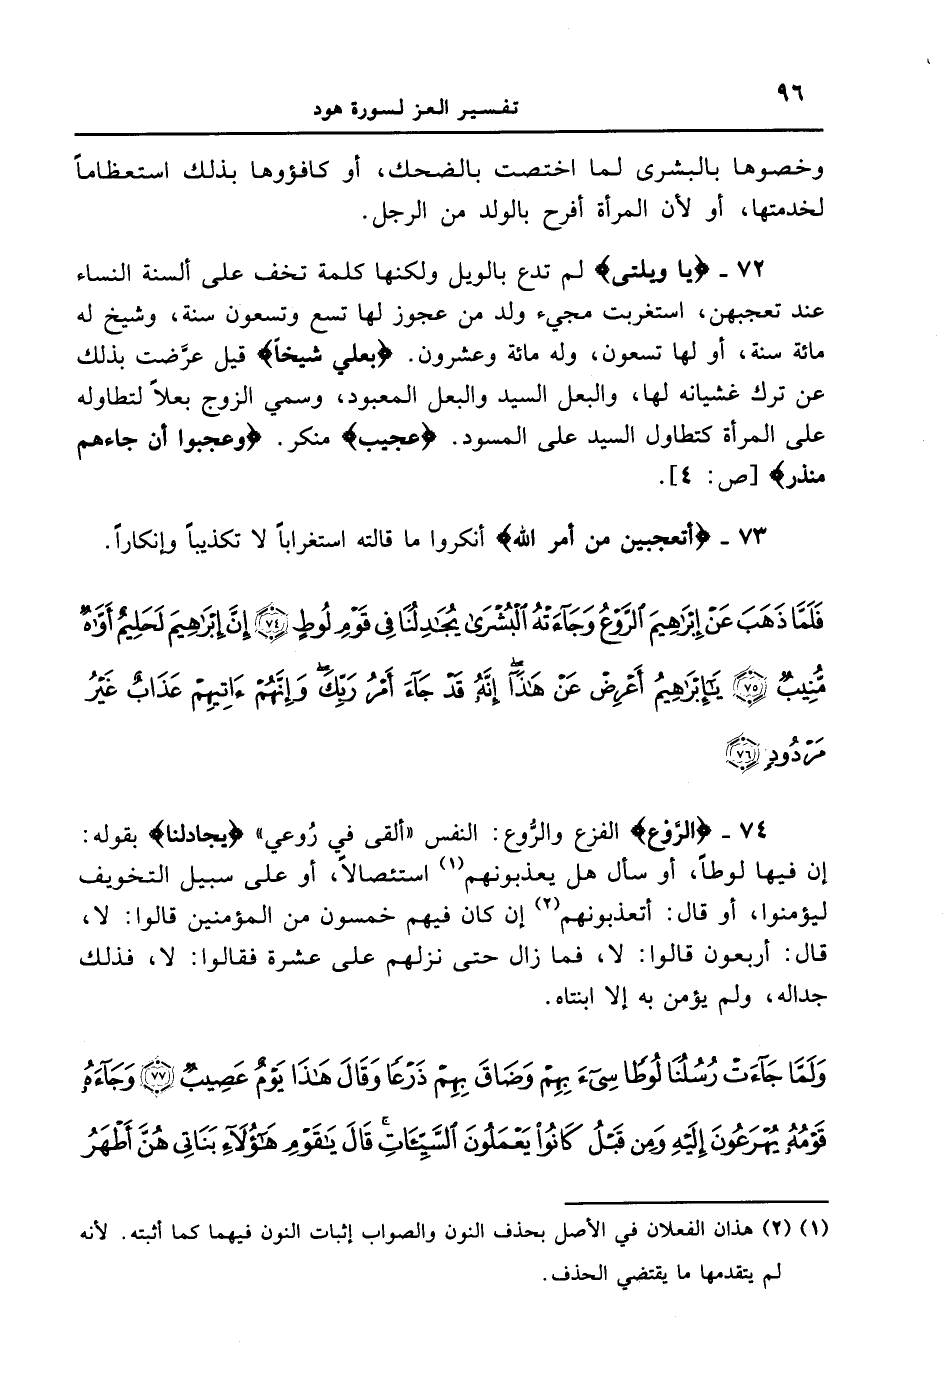 ٩٦
تفسير العز لسورة هود
وخصوها بالبشرى لما اختصت بالضحك، أو كافؤوها بذلك استعظاماً
لخدمتها، أو لأن المرأة أفرح بالولد من الرجل.
٧٢ ـ ﴿يا ويلتى﴾ لم تدع بالويل ولكنها كلمة تخف على ألسنة النساء
عند تعجبهن، استغربت مجيء ولد من عجوز لها تسع وتسعون سنة، وشيخ له
مائة سنة، أو لها تسعون، وله مائة وعشرون. ﴿بعلي شيخاً﴾ قيل عرَّضت بذلك
عن ترك غشيانه لها، والبعل السيد والبعل المعبود، وسمي الزوج بعلاً لتطاوله
على المرأة كتطاول السيد على المسود. ﴿عجيب﴾ منكر. ﴿وعجبوا أن جاءهم
منذر﴾ [ص: ٤].
٧٣ ـ ﴿أتعجبين من أمر الله﴾ أنكروا ما قالته استغراباً لا تكذيباً وإنكاراً.
فَلَمَّا ذَهَبَ عَنْ إِبْرَٰهِيمَ ٱلرَّوْعُ وَجَآءَتْهُ ٱلْبُشْرَىٰ يُجَـٰدِلُنَا فِى قَوْمِ لُوطٍ ﴿٧٤﴾ إِنَّ إِبْرَٰهِيمَ لَحَلِيمٌ أَوَّٰهٌ
مُّنِيبٌ ﴿٧٥﴾ يَـٰٓإِبْرَٰهِيمُ أَعْرِضْ عَنْ هَـٰذَآ ۖ إِنَّهُۥ قَدْ جَآءَ أَمْرُ رَبِّكَ ۖ وَإِنَّهُمْ ءَاتِيهِمْ عَذَابٌ غَيْرُ
مَرْدُودٍ ﴿٧٦﴾
٧٤ ـ ﴿الرَّوْع﴾ الفزع والرُّوع: النفس «ألقى في رُوعي» ﴿يجادلنا﴾ بقوله:
إن فيها لوطاً، أو سأل هل يعذبونهم(١) استئصالاً، أو على سبيل التخويف
ليؤمنوا، أو قال: أتعذبونهم(٢) إن كان فيهم خمسون من المؤمنين قالوا: لا،
قال: أربعون قالوا: لا، فما زال حتى نزلهم على عشرة فقالوا: لا، فذلك
جداله، ولم يؤمن به إلا ابنتاه.
وَلَمَّا جَآءَتْ رُسُلُنَا لُوطًا سِىٓءَ بِهِمْ وَضَاقَ بِهِمْ ذَرْعًا وَقَالَ هَـٰذَا يَوْمٌ عَصِيبٌ ﴿٧٧﴾ وَجَآءَهُۥ
قَوْمُهُۥ يُهْرَعُونَ إِلَيْهِ وَمِن قَبْلُ كَانُوا۟ يَعْمَلُونَ ٱلسَّيِّـَٔاتِ ۚ قَالَ يَـٰقَوْمِ هَـٰٓؤُلَآءِ بَنَاتِى هُنَّ أَطْهَرُ
(١) (٢) هذان الفعلان في الأصل بحذف النون والصواب إثبات النون فيهما كما أثبته. لأنه
لم يتقدمها ما يقتضي الحذف.